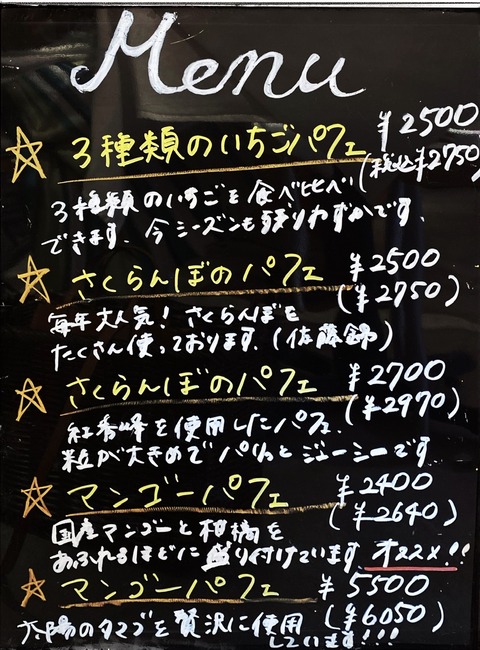 Menu
3種類のいちごパフェ ¥2500
(税込¥2750)
3種類のいちごを食べ比べ
できます。今シーズンも残りわずかです。
さくらんぼのパフェ ¥2500
(¥2750)
毎年大人気!さくらんぼを
たくさん使っております。(佐藤錦)
さくらんぼのパフェ ¥2700
(¥2970)
紅秀峰を使用したパフェ。
粒が大きめでパリッとジューシーです
マンゴーパフェ ¥2400
(¥2640)
国産マンゴーと柑橘を
あふれるほどに盛り付けています。オススメ!!
マンゴーパフェ ¥5500
(¥6050)
太陽のタマゴを贅沢に使用
しています!!!